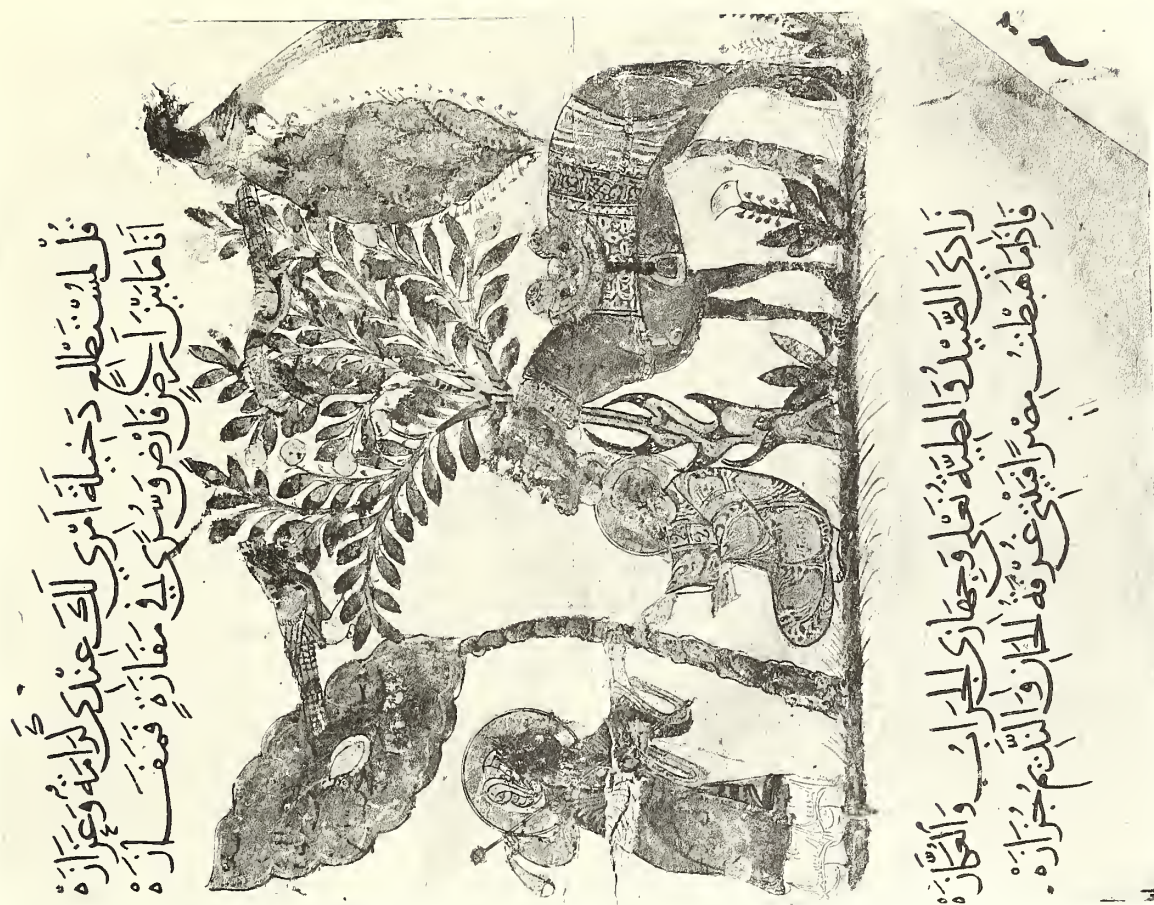 قُلْ لمُسْتَطْلِعٍ دَخِيلَةَ اَمْرِي لَكَ عِنْدِي كَرَامَةٌ وَعَزَازَهْ
اَنَا مَا بَيْنَ اَرْضٍ فَارْضٍ وَسُرًى فِي مَفَازَةٍ فمَفَازَهْ
زَادِيَ الصَّيْدُ وَالمَطِيَّةُ نَعْلِي وَجِهَازِي الجِرَابُ وَالعُكَّازَهْ
فَاِذَا مَا هَبَطْتُ مِصْرًا فَبَيْتِي غُرْفَةُ الخَانِ وَالنَّدِيمُ جُزَازَهْ